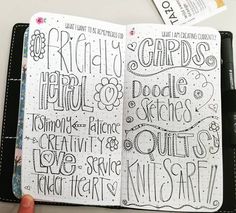 WHAT I WANT TO BE REMEMBERED FOR
FRIENDLY
HELPFUL
Testimony Patience
CREATIVITY
LOVE service
Tender HEART
WHAT I AM CREATING CURRENTLY
CARDS
Doodle
Sketches
QUILTS
KNIT SCARF!!
TAZO